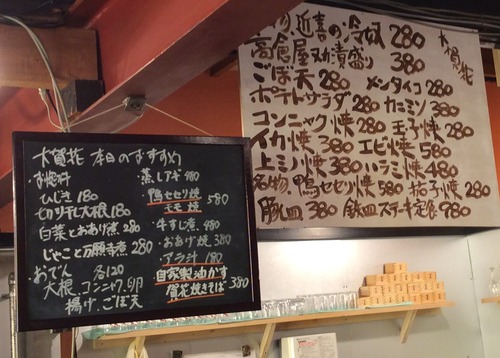 近喜の冷奴 280
高倉屋 漬盛り 380
ごぼ天 280 メンタイコ 280
ポテトサラダ 280 カニミソ 380
コンニャク焼 280 玉子焼 280
イカ焼 380 エビ焼 580
上ミノ焼 380 ハラミ焼 480
名物、鴨セセリ焼 580 柚子焼 280
豚皿 380 鉄皿ステーキ定食 980
木賀花
木賀花 本日のおすすめ
お惣料
ひじき 180
切り干し大根 180
白菜とおあげ煮 280
じゃこと万願寺煮 280
おでん 各120
大根、コンニャク、卵
揚げ、ごぼ天
蒸しアギ 980
鴨セセリ焼
モモ焼 580
牛すじ煮 480
おあげ焼 380
アラ汁 180
自家製油かす
賀花焼きそば 380